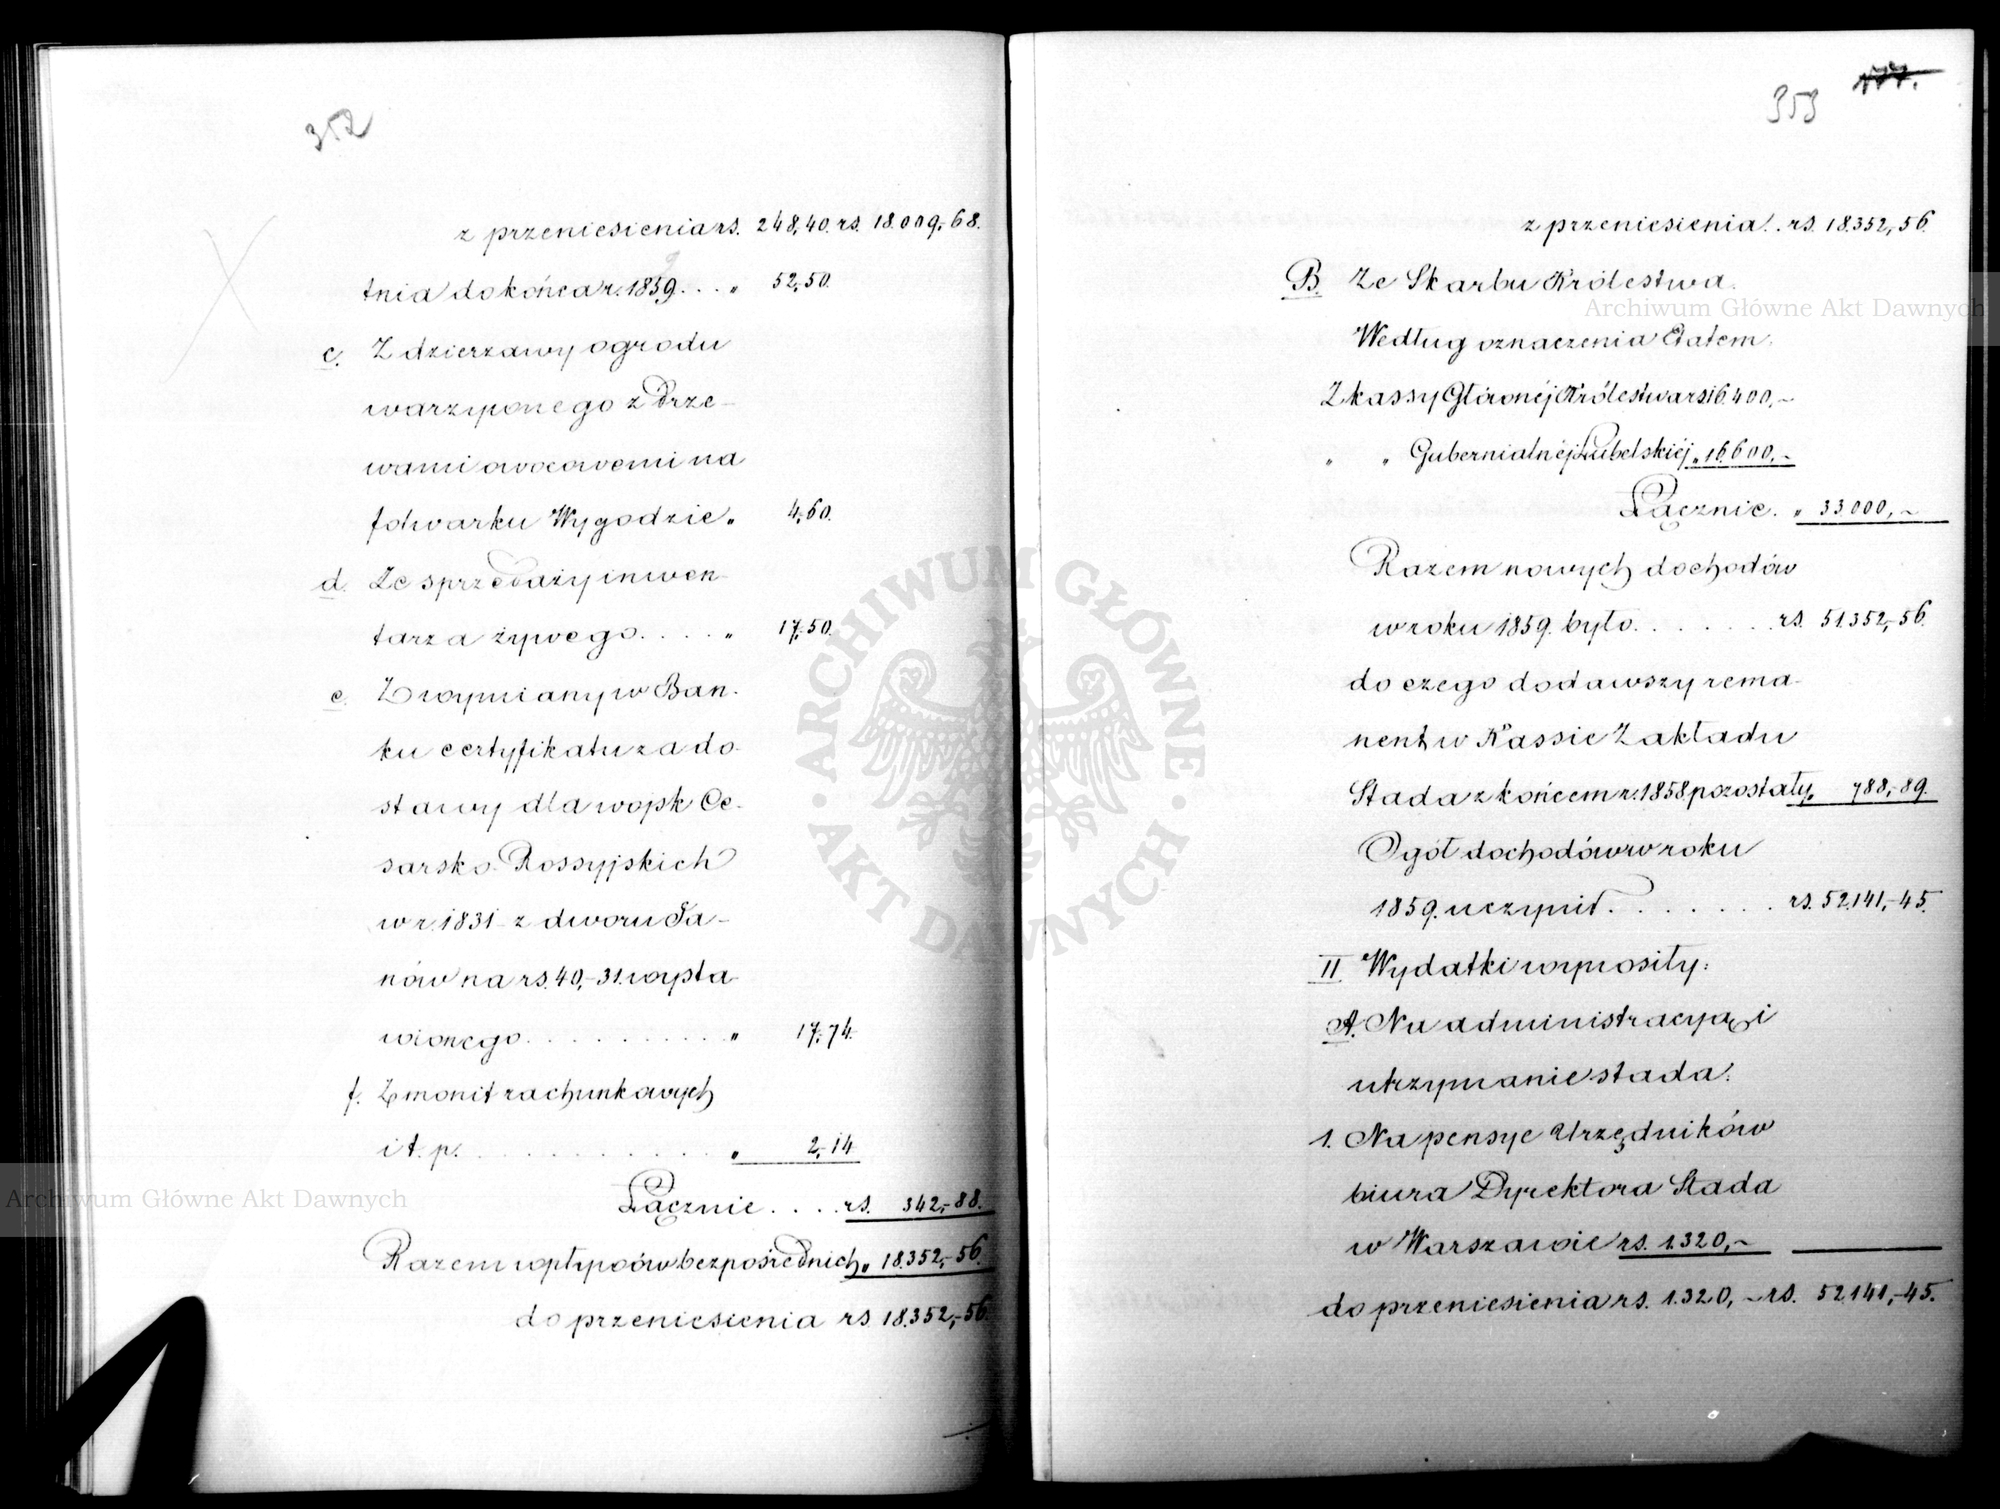 352
z przeniesienia rs. 248,40. rs. 18.009,-68.
tnia do końca r. 1859. . . „ 52,50.
c. Z dzierzawy ogrodu
warzywnego z drze-
wami owocowemi na
folwarku Wygodzie „ 4,60.
d. Ze sprzedaży inwen-
tarza żywego. . . . „ 17,50.
e. Z wymiany w Ban-
ku certyfikatu za do-
stawy dla wojsk Ce-
sarsko-Rossyjskich
w r. 1831 z dworu Ja-
nów na rs. 40,-31. wysta-
wionego . . . . . . . . . . „ 17,74.
f. Z monit rachunkowych
i t. p. . . . . . . . . . . . „ 2,-14
Łącznie . . . . rs. 342,-88.
Razem wpływów bezpośrednich „ 18.352,-56.
do przeniesienia rs. 18.352,-56.
177.
353
z przeniesienia . rs. 18.352,-56.
B. Ze Skarbu Królestwa.
Według oznaczenia Etatem.
Z kassy Głównéj Królestwa rs. 16.400,-
„ „ Gubernialnéj Lubelskiéj „ 16.600,-
Łącznie. „ 33.000,-
Razem nowych dochodów
w roku 1859. było. . . . . . . rs. 51.352,-56.
do czego dodawszy rema-
nent w Kassie Zakładu
Stada z końcem r. 1858 pozostały „ 788,-89.
Ogół dochodów w roku
1859. uczynił. . . . . . . rs. 52.141,-45.
II Wydatki wynosiły:
A. Na administracyą i
utrzymanie stada.
1. Na pensye Urzędników
biura Dyrektora Stada
w Warszawie rs. 1.320,-
do przeniesienia rs. 1.320,- rs. 52.141,-45.
Archiwum Główne Akt Dawnych
Archiwum Główne Akt Dawnych
ARCHIWUM GŁÓWNE AKT DAWNYCH